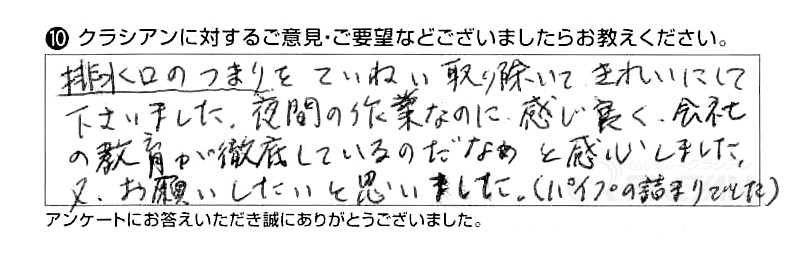 ⑩ クラシアンに対するご意見・ご要望などございましたらお教えください。
排水口のつまりをていねい取り除いてきれいにして
下さいました。夜間の作業なのに感じ良く、会社
の教育が徹底しているのだなぁと感心しました。
又、お願いしたいと思いました。(パイプの詰まりでした)
アンケートにお答えいただき誠にありがとうございました。